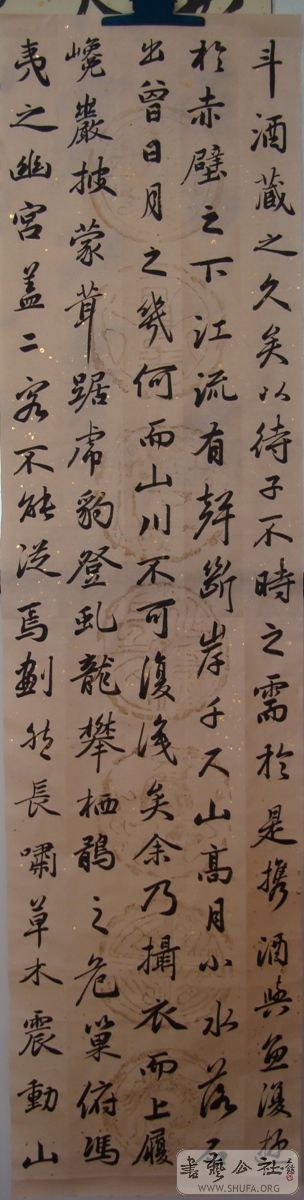 斗酒藏之久矣以待子不時之需於是攜酒與魚復遊
於赤壁之下江流有聲斷岸千尺山高月小水落石
出曾日月之幾何而山川不可復識矣余乃攝衣而上履
巉巖披蒙茸踞虎豹登虬龍攀栖鶻之危巢俯馮
夷之幽宮蓋二客不能從焉劃然長嘯草木震動山
書藝公社
WWW.SHUFA.ORG